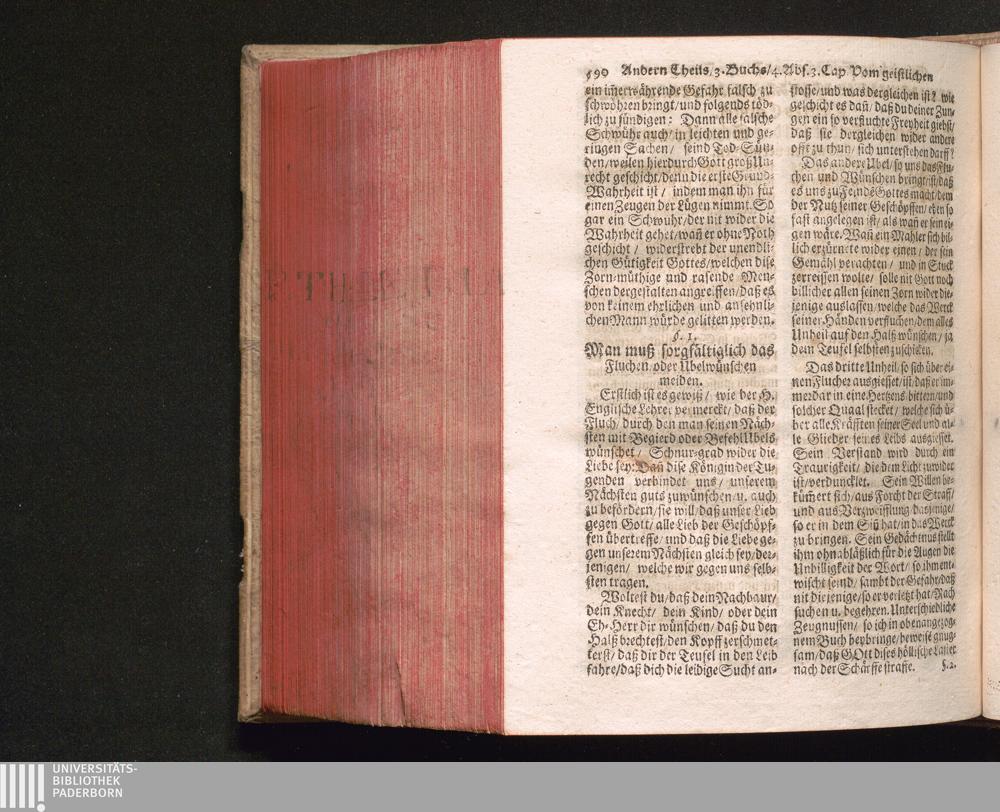 590 Andern Theils/3. Buchs/4. Abs. 3. Cap Vom geistlichen
ein im̃erwährende Gefahr falsch zu
schwöhren bringt/und folgends töd-
lich zu sündigen: Dann alle falsche
Schwühr auch/in leichten und ge-
ringen Sachen/ seind Tod-Sün-
den/weilen hierdurch Gott groß Un-
recht geschicht/denn die erste Grund-
Wahrheit ist/ indem man ihn für
einen Zeugen der Lügen nimmt. So
gar ein Schwuhr/der nit wider die
Wahrheit gehet/wañ er ohne Noth
geschicht/ widerstrebt der unendli-
chen Gütigkeit Gottes/welchen dise
Zorn-müthige und rasende Men-
schen dergestalten angreiffen/daß es
von keinem ehrlichen und ansehnli-
chen Mann würde gelitten werden.
§. 1.
Man muß sorgfältiglich das
Fluchen oder Ubelwünschen
meiden.
Erstlich ist es gewiß/ wie der H.
Englische Lehrer vermerckt/daß der
Fluch/durch den man seinen Näch-
sten mit Begierd oder Befehl Ubels
wünschet/ Schnur-grad wider die
Liebe sey: Dañ dise Königin der Tu-
genden verbindet uns/ unserem
Nächsten guts zuwünschen/u. auch
zu befördern/sie will/daß unser Lieb
gegen Gott/alle Lieb der Geschöpf-
fen übertreffe/und daß die Liebe ge-
gen unserem Nächsten gleich sey/der-
jenigen/ welche wir gegen uns selb-
sten tragen.
Woltest du/daß dein Nachbaur/
dein Knecht/ dein Kind/ oder dein
Eh-Herr dir wünschen/daß du den
Halß brechtest/den Kopff zerschmet-
terst/daß dir der Teufel in den Leib
fahre/daß dich die leidige Sucht an-
stosse/und was dergleichen ist? wie
geschicht es dañ/daß du deiner Zun-
gen ein so verfluchte Freyheit giebst/
daß sie dergleichen wider andere
offt zu thun/sich unterstehen darff?
Das andere Ubel/so uns das Flu-
chen und Wünschen bringt/ist/daß
es uns zu Feinde Gottes macht/dem
der Nutz seiner Geschöpffen/eben so
fast angelegen ist/als wañ er sein ei-
gen wäre. Wañ ein Mahler sich bil-
lich erzürnete wider einen/der sein
Gemähl verachten/ und in Stuck
zerreissen wolte/ solle nit Gott noch
billicher allen seinen Zorn wider die-
jenige auslassen/welche das Werck
seiner Händen verfluchen/dem alles
Unheil auf den Halß wünschen/ja
dem Teufel selbsten zuschicken.
Das dritte Unheil/so sich über ei-
nen Flucher ausgiesset/ist/daß er im-
merdar in eine Hertzens bittern/und
solcher Quaal stecket/welche sich ü-
ber alle Kräfften seiner Seel und al-
le Glieder seines Leibs ausgiesset.
Sein Verstand wird durch ein
Traurigkeit/die dem Licht zuwider
ist/verduncklet. Sein Willen be-
küm̃ert sich/aus Forcht der Straff/
und aus Verzweifflung dasjenige/
so er in dem Siñ hat/in das Werck
zu bringen. Sein Gedächtnus stellt
ihm ohnabläßlich für die Augen die
Unbilligkeit der Wort/so ihm ent-
wischt seind/sambt der Gefahr/daß
nit diejenige/so er verletzt hat/Rach
suchen u. begehren. Unterschiedliche
Zeugnussen/so ich in oben angezog-
nem Buch beybringe/beweise gnug-
sam/daß GOtt dises höllische Laster
nach der Schärffe straffe. §.2.
UNIVERSITÄTS-
BIBLIOTHEK
PADERBORN